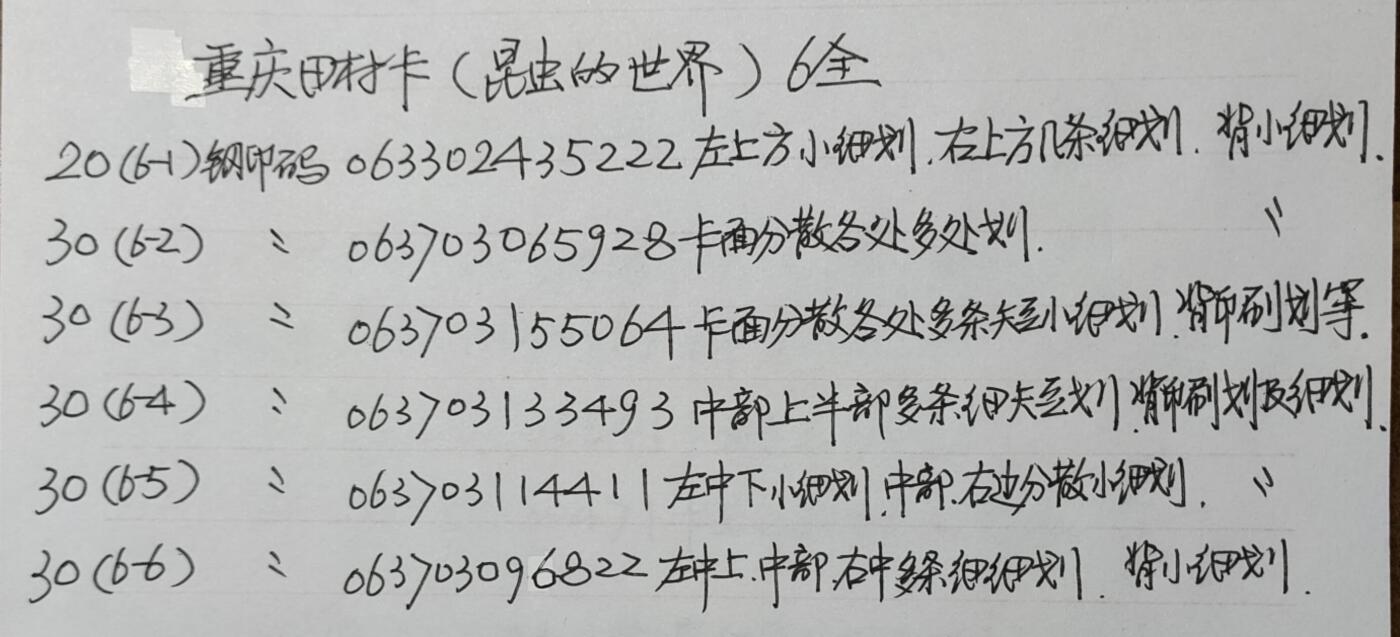 重庆田村卡（昆虫的世界）6全
20(6-1)钢印码 063302435222 左上方小细划.右上方几条细划.背小细划.
30(6-2) 〃 063703065928 卡面分散各处多处划. 〃
30(6-3) 〃 063703155064 卡面分散各处多条短小细划.背印刷划等.
30(6-4) 〃 063703133493 中部上半部多条细短划.背印刷划及细划.
30(6-5) 〃 063703114411 左中下小细划.中部.右边分散小细划. 〃
30(6-6) 〃 063703096822 左中上.中部.右中多条细细划.背小细划.